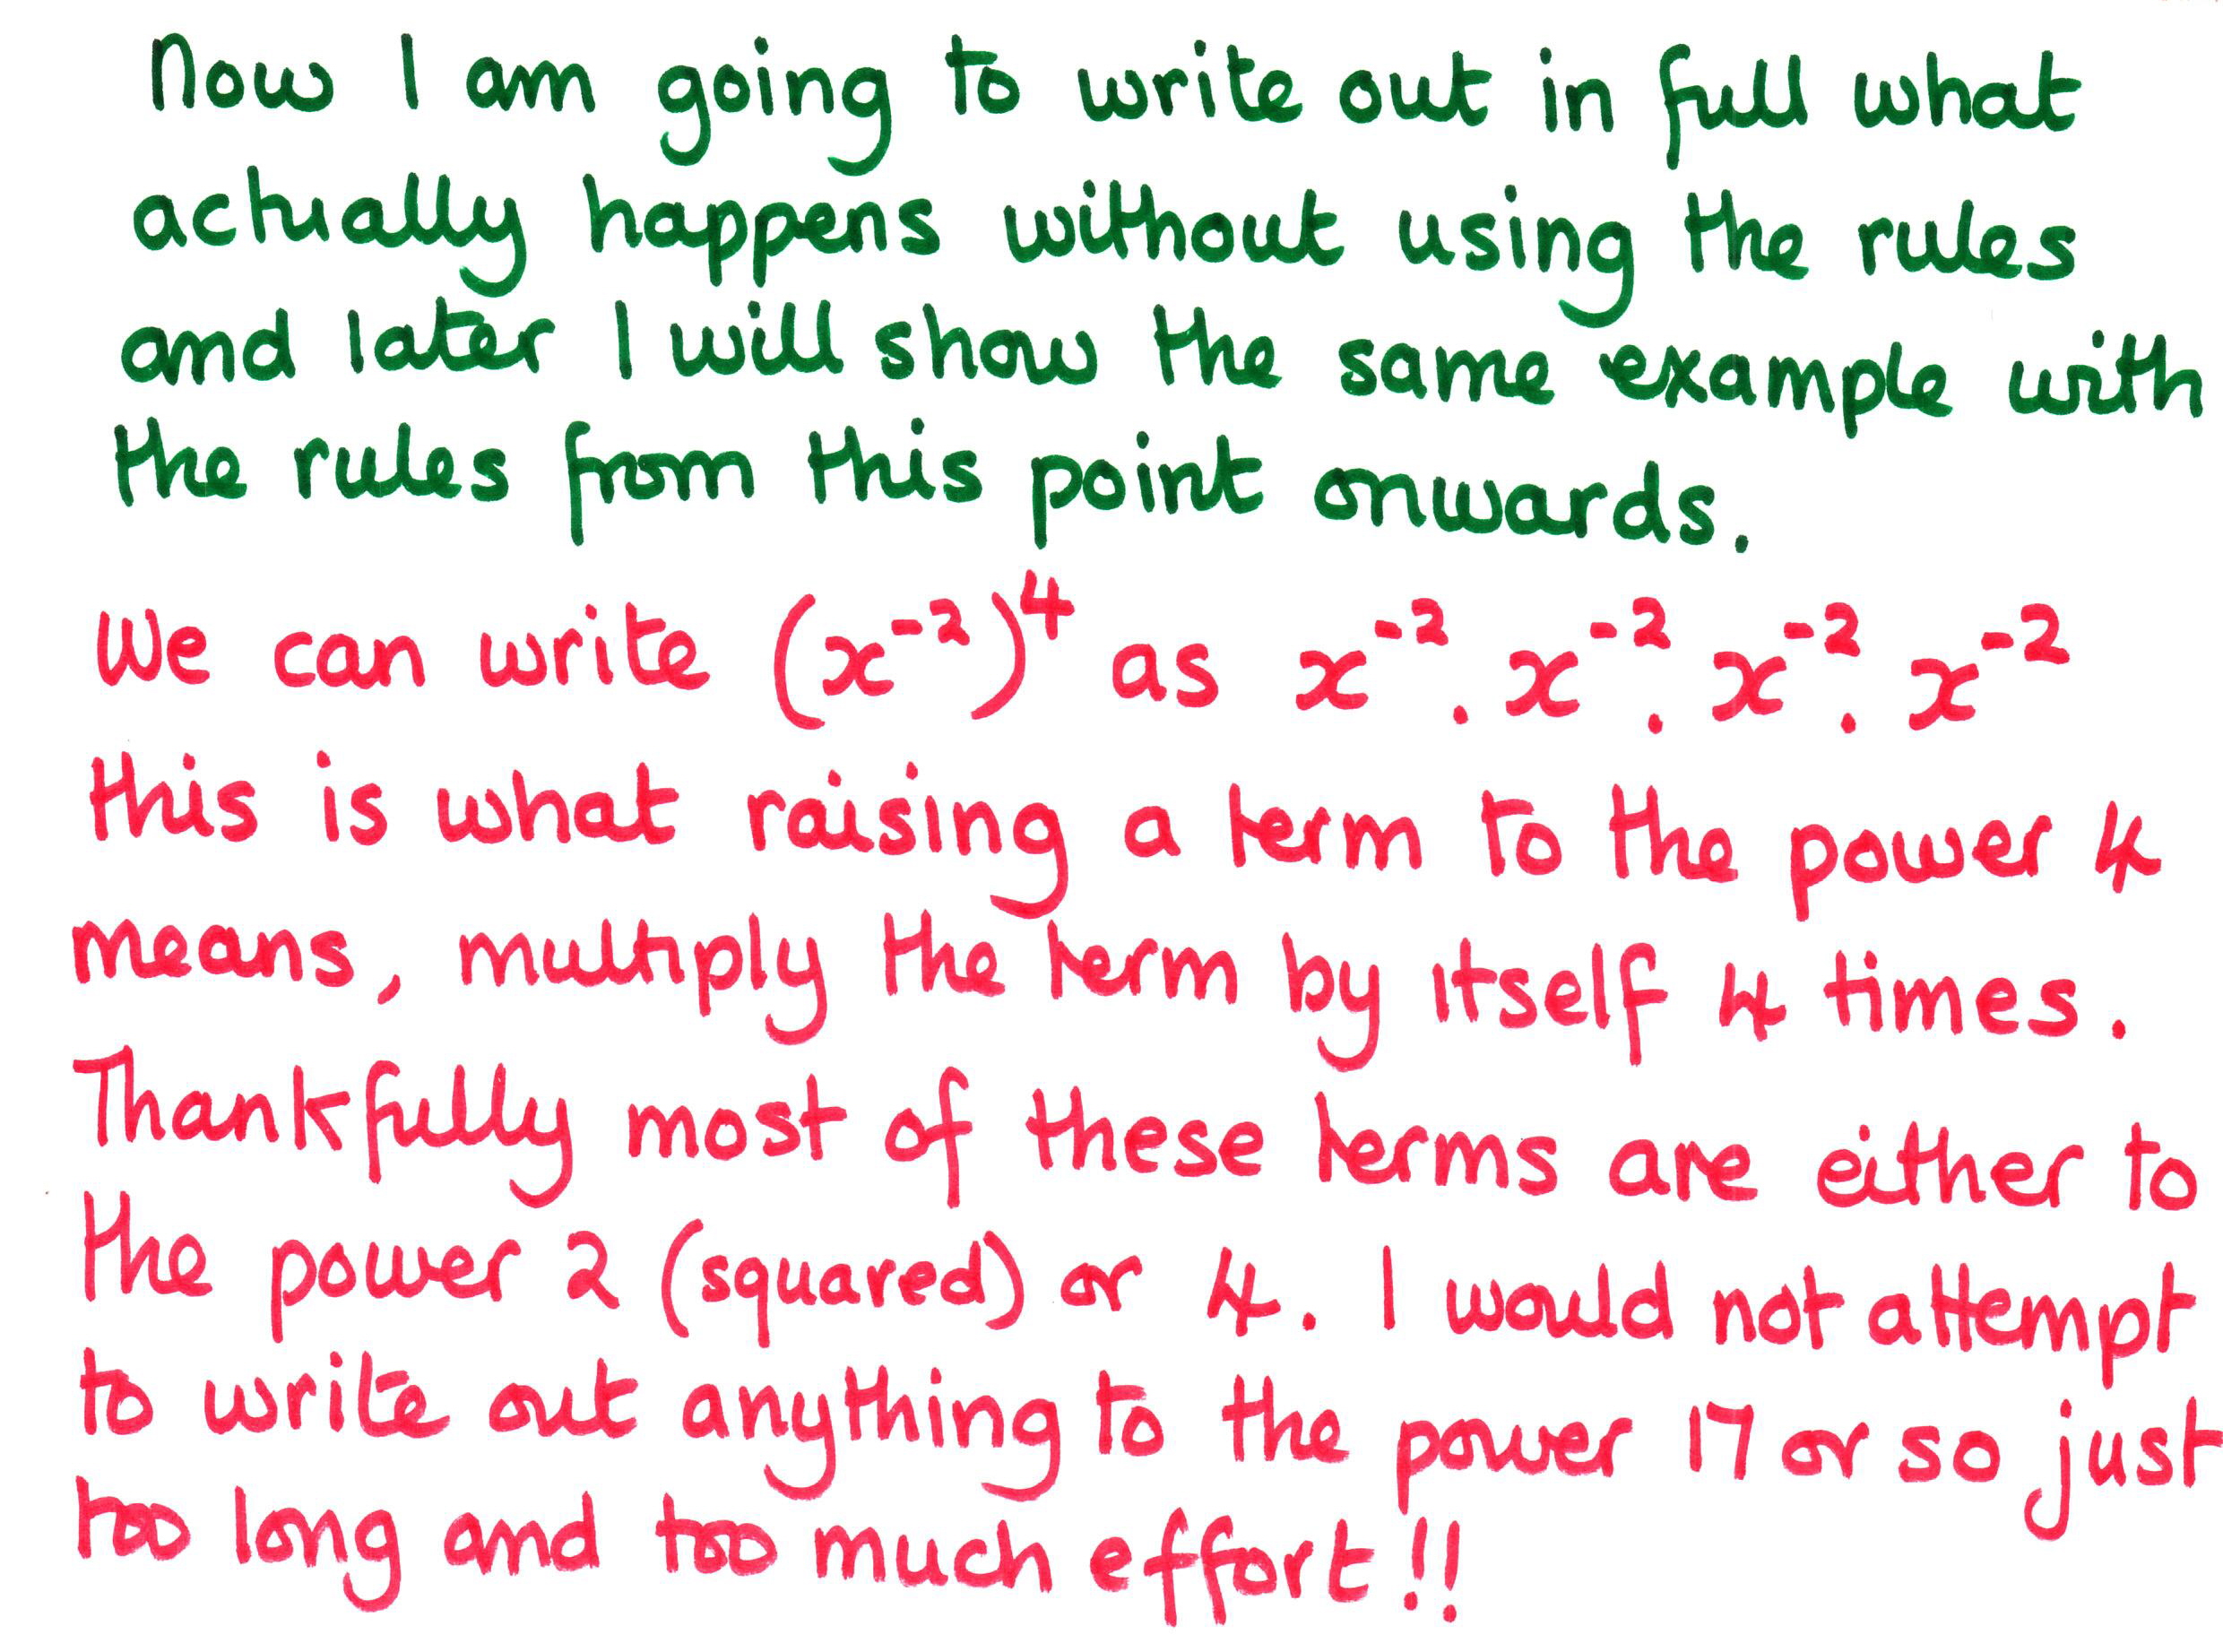 Now I am going to write out in full what
actually happens without using the rules
and later I will show the same example with
the rules from this point onwards.
We can write (x⁻²)⁴ as x⁻² . x⁻² . x⁻² . x⁻²
this is what raising a term to the power 4
means, multiply the term by itself 4 times.
Thankfully most of these terms are either to
the power 2 (squared) or 4. I would not attempt
to write out anything to the power 17 or so just
too long and too much effort!!